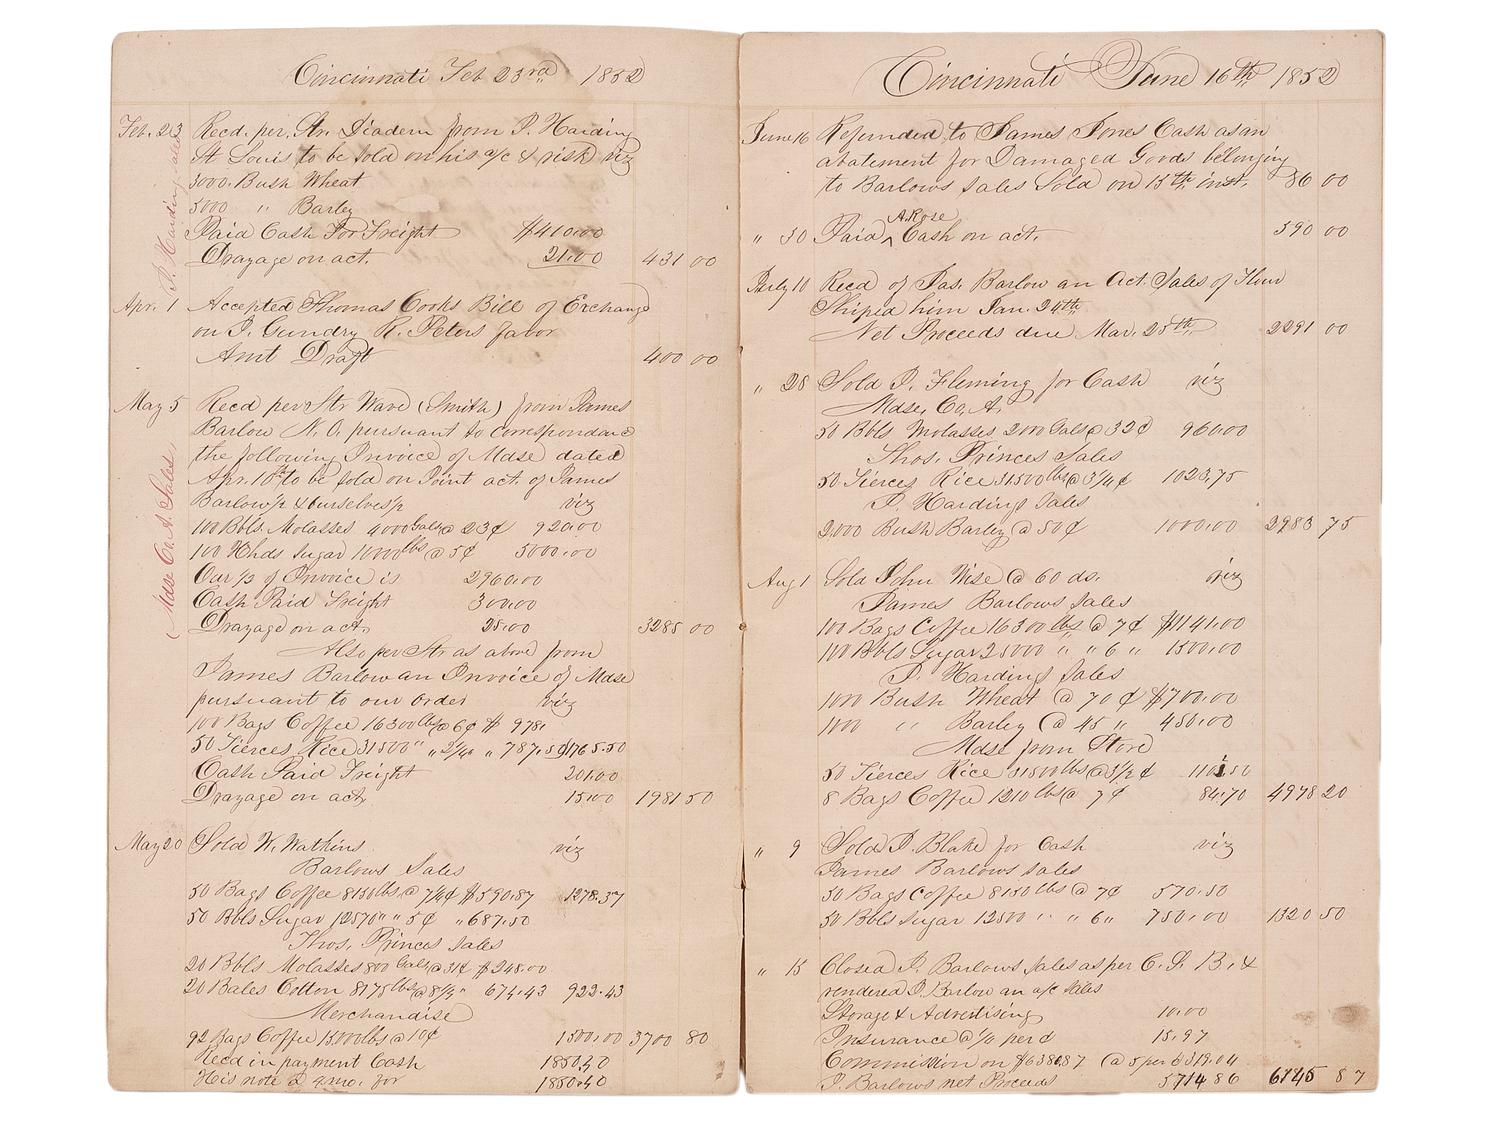 Cincinnati Feb 23rd 1852
Feb. 23 Recd. per. Str. Diadem from J. Harding
St Louis to be sold on his a/c & risk viz
3000. Bush Wheat
5000 " Barley
Paid Cash For Freight $410.00
Drayage on act. 21.00 431 00
J. Harding sales
Apr. 1 Accepted Thomas Cooks Bill of Exchange
on J. Gundry R. Peters favor
Amt Draft 400 00
May 5 Recd per Str Ward (Smith) from James
Barlow N. O. pursuant to correspondence
the following Invoice of Mdse dated
Apr. 18th to be sold on Joint act. of James
Barlow ½ & ourselves ½ viz
100 Bbls. Molasses 4000 Gals @ 23¢ 920.00
100 Hhds Sugar 10000 lbs @ 5¢ 5000.00
Our ½ of Invoice is 2960.00
Cash Paid Freight 300.00
Drayage on act. 25.00 3285 00
Mdse Co. A. Sales
Also per Str as above from
James Barlow an Invoice of Mdse
pursuant to our order viz
100 Bags Coffee 16300 lbs @ 6¢ $ 978.
50 Tierces Rice 31500 " " 2½" " 787.50 $1765.50
Cash Paid Freight 201.00
Drayage on act 15.00 1981 50
May 20 Sold W. Watkins viz
Barlows Sales
50 Bags Coffee 8150 lbs @ 7¼¢ $590.87 1278.37
50 Bbls Sugar 12570 " " 5¢ " 687.50
Thos. Princes Sales
20 Bbls Molasses 800 Gals @ 31¢ $248.00
20 Bales Cotton 8175 lbs @ 8¼" 674.43 922.43
Merchandise
92 Bags Coffee 15000 lbs @ 10¢ 1500.00 3700 80
Recd in payment Cash 1850.40
His note @ 4 mo. for 1850.40
Cincinnati June 16th 1852
June 16 Refunded to James Jones Cash as an
abatement for Damaged Goods belonging
to Barlows sales Sold on 15th inst. 86 00
A. Rose
" 30 Paid ^ Cash on act. 590 00
July 10 Recd of Jas. Barlow an Act. Sales of Flour
Shiped him Jan. 24th
Net Proceeds due Mar. 25th 2291 00
" 28 Sold J. Fleming for Cash viz
Mdse. Co. A.
50 Bbls Molasses, 2000 Gals @ 32¢ 960.00
Thos. Princes Sales
50 Tierces Rice 31500 lbs @ 3¼¢ 1023.75
J. Hardings Sales
2000 Bush Barley @ 50¢ 1000.00 2983 75
Aug 1 Sold John Wise @ 60 ds. viz
James Barlows Sales
100 Bags Coffee 16300 lbs @ 7¢ $1141.00
100 Bbls Sugar 25000 " " 6 " 1500.00
J. Hardings Sales
1000 Bush Wheat @ 70 ¢ $700.00
1000 " Barley @ 45 " 450.00
Mdse from Store
50 Tierces Rice 31500 lbs @ 3½ ¢ 1102.50
8 Bags Coffee 1210 lbs @ 7¢ 84.70 4978 20
" 9 Sold J. Blake for Cash viz
James Barlows Sales
50 Bags Coffee 8150 lbs @ 7¢ 570.50
50 Bbls Sugar 12500 " " 6 " 750.00 1320 50
" 15 Closed J. Barlows Sales as per C. S. B. &
rendered J. Barlow an a/c Sales
Storage & Advertising 10.00
Insurance @ ¼ per ¢ 15.97
Commission on $6380.87 @ 5 per ¢ 319.04
J. Barlows net Proceeds 5714 86 6145 87